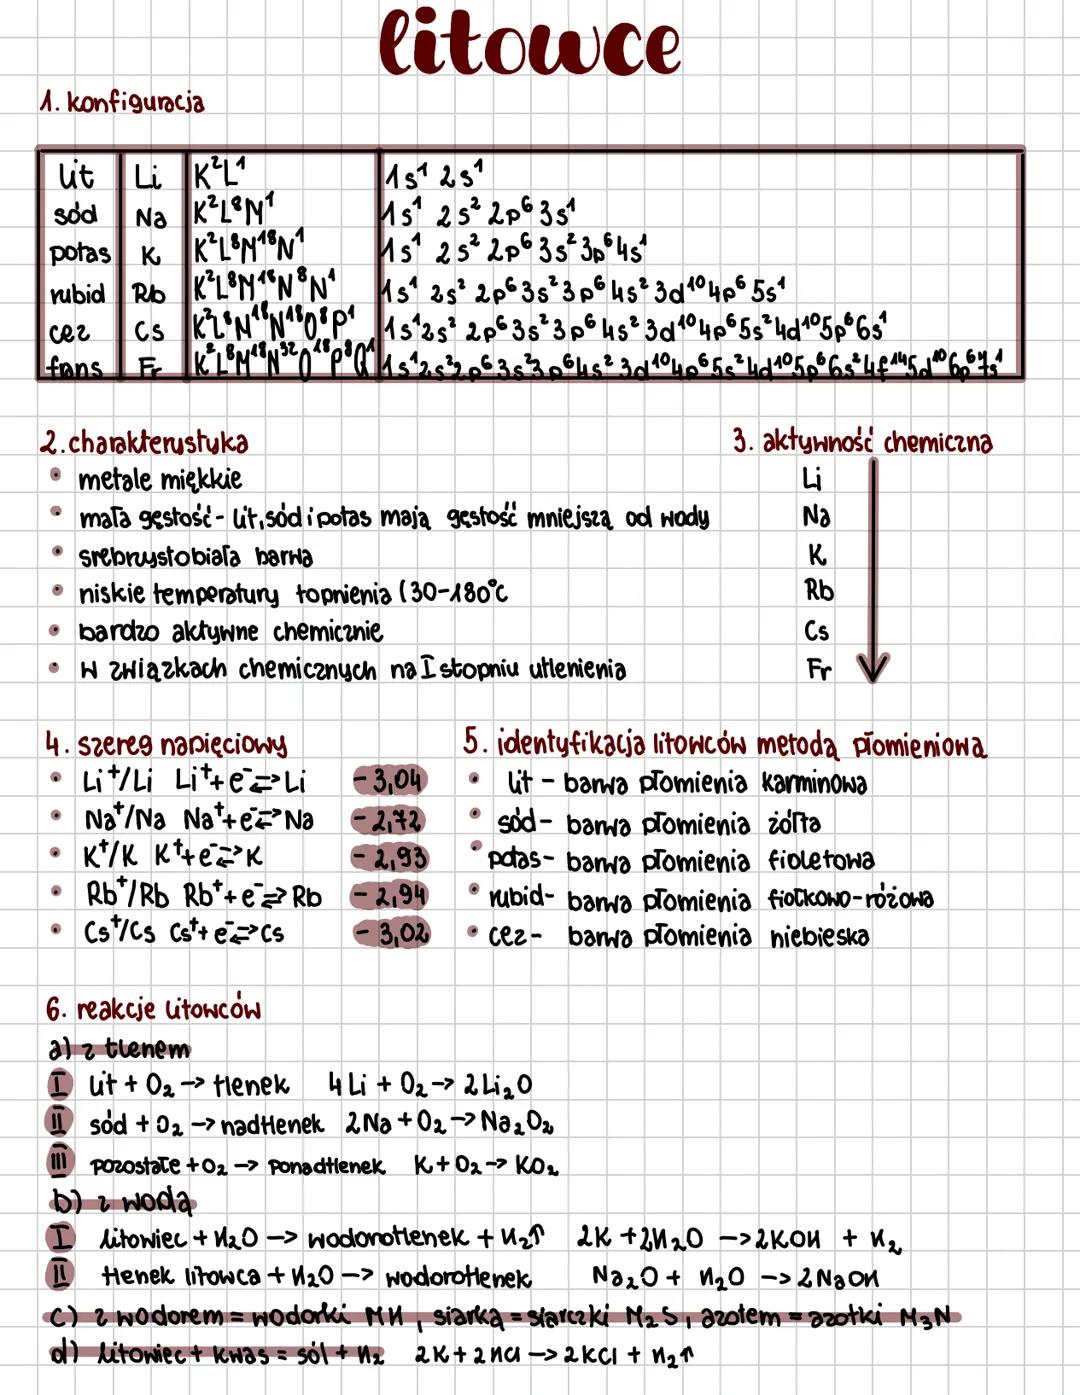 litowce
1. konfiguracja
lit Li K²L¹ 1s¹ 2s¹
sód Na K²L⁸M¹ 1s¹ 2s² 2p⁶ 3s¹
potas K K²L⁸M¹⁸N¹ 1s¹ 2s² 2p⁶ 3s² 3p⁶ 4s¹
rubid Rb K²L⁸M¹⁸N⁸N¹ 1s¹ 2s² 2p⁶ 3s² 3p⁶ 4s² 3d¹⁰ 4p⁶ 5s¹
cez Cs K²L⁸N¹⁸N¹⁸O⁸P¹ 1s¹ 2s² 2p⁶ 3s² 3p⁶ 4s² 3d¹⁰ 4p⁶ 5s² 4d¹⁰ 5p⁶ 6s¹
frans Fr K²L⁸M¹⁸N³²O¹⁸P⁸Q¹ 1s¹ 2s² 2p⁶ 3s² 3p⁶ 4s² 3d¹⁰ 4p⁶ 5s² 4d¹⁰ 5p⁶ 6s² 4f¹⁴ 5d¹⁰ 6p⁶ 7s¹
2. charakterystyka
• metale miękkie
• mała gęstość - lit, sód i potas mają gęstość mniejszą od wody
• srebrzystobiała barwa
• niskie temperatury topnienia (30-180°C
• bardzo aktywne chemicznie
• w związkach chemicznych na I stopniu utlenienia
3. aktywność chemiczna
Li
Na
K
Rb
Cs
Fr
4. szereg napięciowy
• Li⁺/Li Li⁺+e⁻⇄Li -3,04
• Na⁺/Na Na⁺+e⁻⇄Na -2,72
• K⁺/K K⁺+e⁻⇄K -2,93
• Rb⁺/Rb Rb⁺+e⁻⇄Rb -2,94
• Cs⁺/Cs Cs⁺+e⁻⇄Cs -3,02
5. identyfikacja litowców metodą płomieniową
• lit - barwa płomienia karminowa
• sód - barwa płomienia żółta
• potas - barwa płomienia fioletowa
• rubid - barwa płomienia fiołkowo-różowa
• cez - barwa płomienia niebieska
6. reakcje litowców
a) z tlenem
I lit + O₂ -> tlenek 4Li + O₂ -> 2Li₂O
II sód + O₂ -> nadtlenek 2Na + O₂ -> Na₂O₂
III pozostałe + O₂ -> ponadtlenek K + O₂ -> KO₂
b) z wodą
I litowiec + H₂O -> wodorotlenek + H₂↑ 2K + 2H₂O -> 2KOH + H₂
II tlenek litowca + H₂O -> wodorotlenek Na₂O + H₂O -> 2NaOH
c) z wodorem = wodorki MH, siarką = siarczki M₂S, azotem = azotki M₃N
d) litowiec + kwas = sól + H₂ 2K + 2HCl -> 2KCl + H₂↑